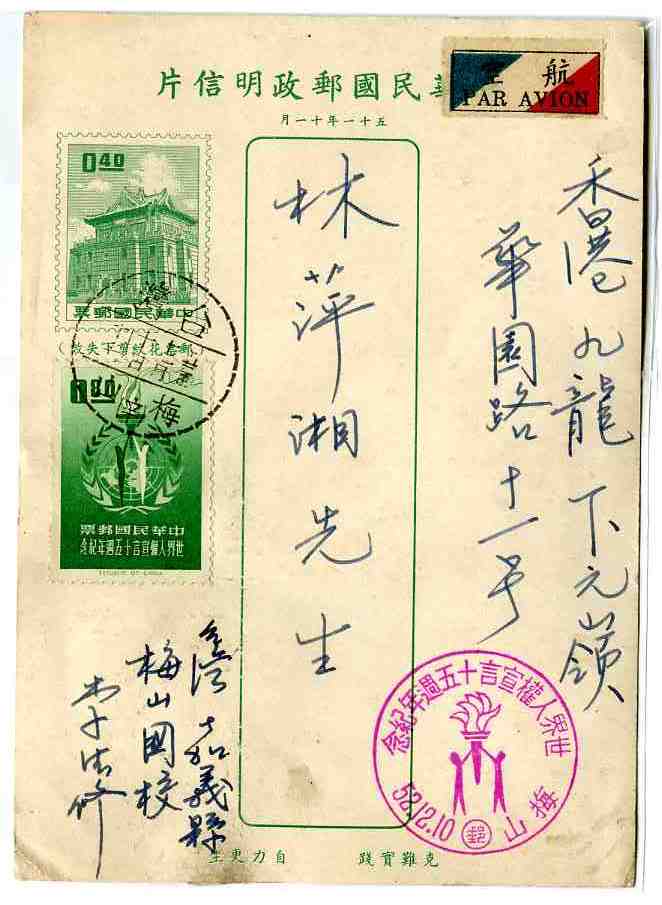 華民國郵政明信片
五十一年十一月
航空
PAR AVION
香港九龍下元嶺
華園路十一号
林萍湘先生
0.40
中華民國郵票
(郵票花紋剪下失效)
台灣
梅山
1.80
中華民國郵票
世界人權宣言十五週年紀念
台湾嘉義縣
梅山國校
世界人權宣言十五週年紀念
梅山
52.12.10
郵
克難實踐 自力更生